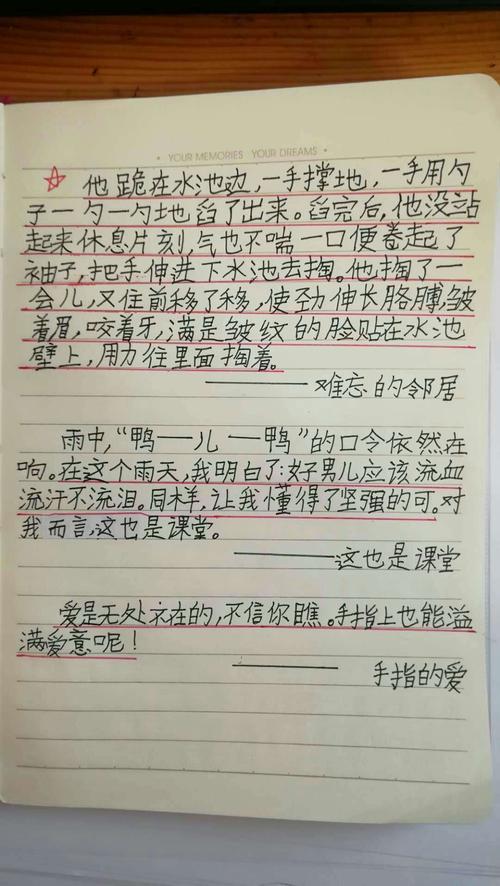 • YOUR MEMORIES YOUR DREAMS •
☆ 他跪在水池边,一手撑地,一手用勺
子一勺一勺地舀了出来。舀完后,他没站
起来休息片刻,气也不喘一口便卷起了
袖子,把手伸进下水池去掏。他掏了一
会儿,又往前移了移,使劲伸长胳膊,皱
着眉,咬着牙,满是皱纹的脸贴在水池
壁上,用力往里面掏着。
———难忘的邻居
雨中,“鸭—儿—鸭”的口令依然在
响。在这个雨天,我明白了:好男儿应该流血
流汗不流泪。同样,让我懂得了坚强的可。对
我而言,这也是课堂。
———这也是课堂
爱是无处不在的,不信你瞧。手指上也能溢
满爱意呢!
———手指的爱